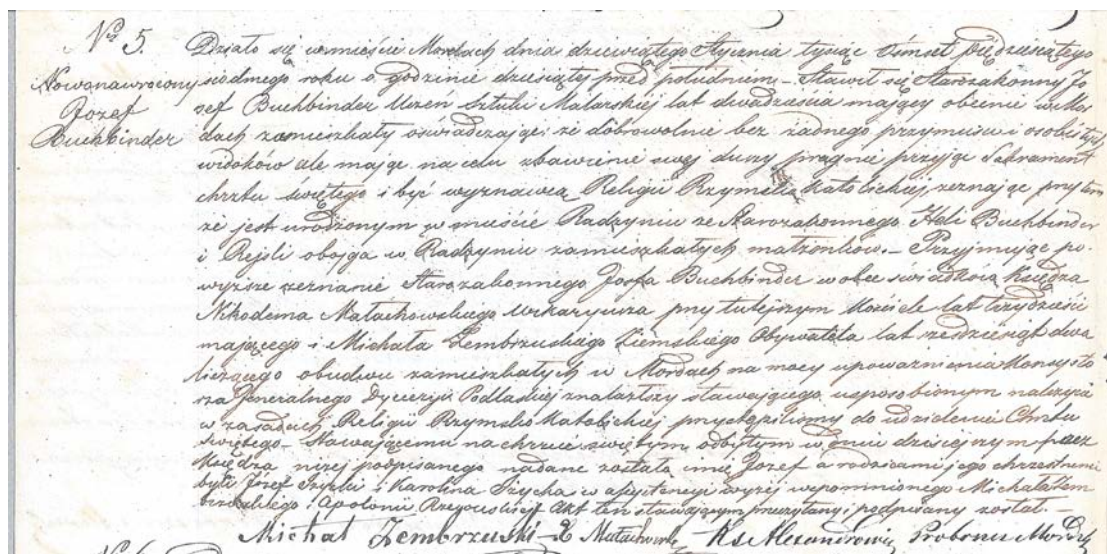 Nro 5. Działo się w mieście Mordach dnia dziewiątego Stycznia tysiąc ośmset pięćdziesiątego
Nowonawrócony siódmego roku o godzinie dziesiąty przed południem – Stawił się Starozakonny Jo
Jozef zef Buchbinder Uczeń Sztuki Malarskiej lat dwadzieścia mający obecnie w Mor
Buchbinder dach zamieszkały oświadczając że dobrowolnie bez żadnego przymusu i osobistych
widoków ale mając na celu zbawienie swej duszy pragnie przyjąć Sakrament
chrztu świętego i być wyznawcą Religii Rzymsko Katolickiej, zeznając przy tem
że jest urodzonym w mieście Radzyniu ze Starozakonnego Heli Buchbinder
i Rejsli obojga w Radzyniu zamieszkałych małżonków. – Przyjmując po-
wyższe zeznanie Starozakonnego Josfa Buchbinder w obec świadków Księdza
Nikodema Małachowskiego Wikaryusza przy tutejszym Kościele lat trzydzieści
mającego i Michała Zembrzuskiego Ziemskiego Obywatela lat sześdziesiąt dwa
liczącego obudwu zamieszkałych w Mordach na mocy upoważnienia Konsysto
rza Jeneralnego Dyecezyi Podlaskiej znalazłszy stawającego usposobionym należycie
w zasadach Religii Rzymsko Katolickiej przystąpiliśmy do udzielenia Chrztu
świętego – Stawającemu na chrzcie świętym odbytym w dniu dzisiejszym przez
Księdza niżej podpisanego nadane zostało imię Jozef a rodzicami jego chrzestnemi
byli Jozef i Karolina w assystencyi wyżej wspomnionego Michała Zem
brzuskiego i Apolonii Akt ten stawającym przeczytany i podpisany został. –
Michał Zembrzuski – X Małachowski – Ks Alexandrowicz Proboszcz Mordzki